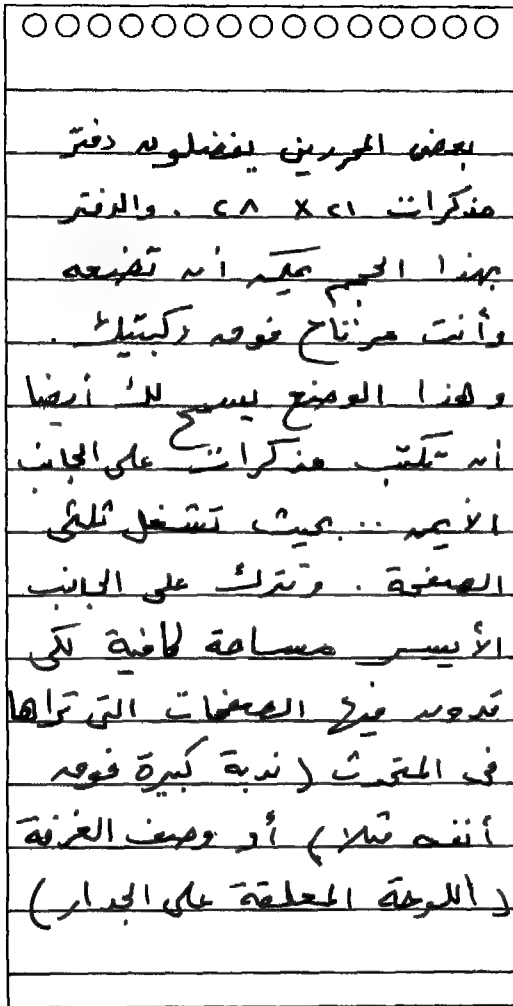 بعض المحررين يفضلون دفتر
مذكرات ٢١ × ٢٨ . والدفتر
بهذا الحجم يمكن أن تضعه
وأنت مرتاح فوق ركبتيك .
وهذا الوضع يسمح لك أيضا
أن تكتب مذكرات على الجانب
الأيمن .. بحيث تشغل ثلثى
الصفحة . وتترك على الجانب
الأيسر مساحة كافية لكى
تدون فيها الصفات التى تراها
فى المتحدث (ندبة كبيرة فوق
أنفه مثلا) أو وصف الغرفة
(اللوحة المعلقة على الجدار)